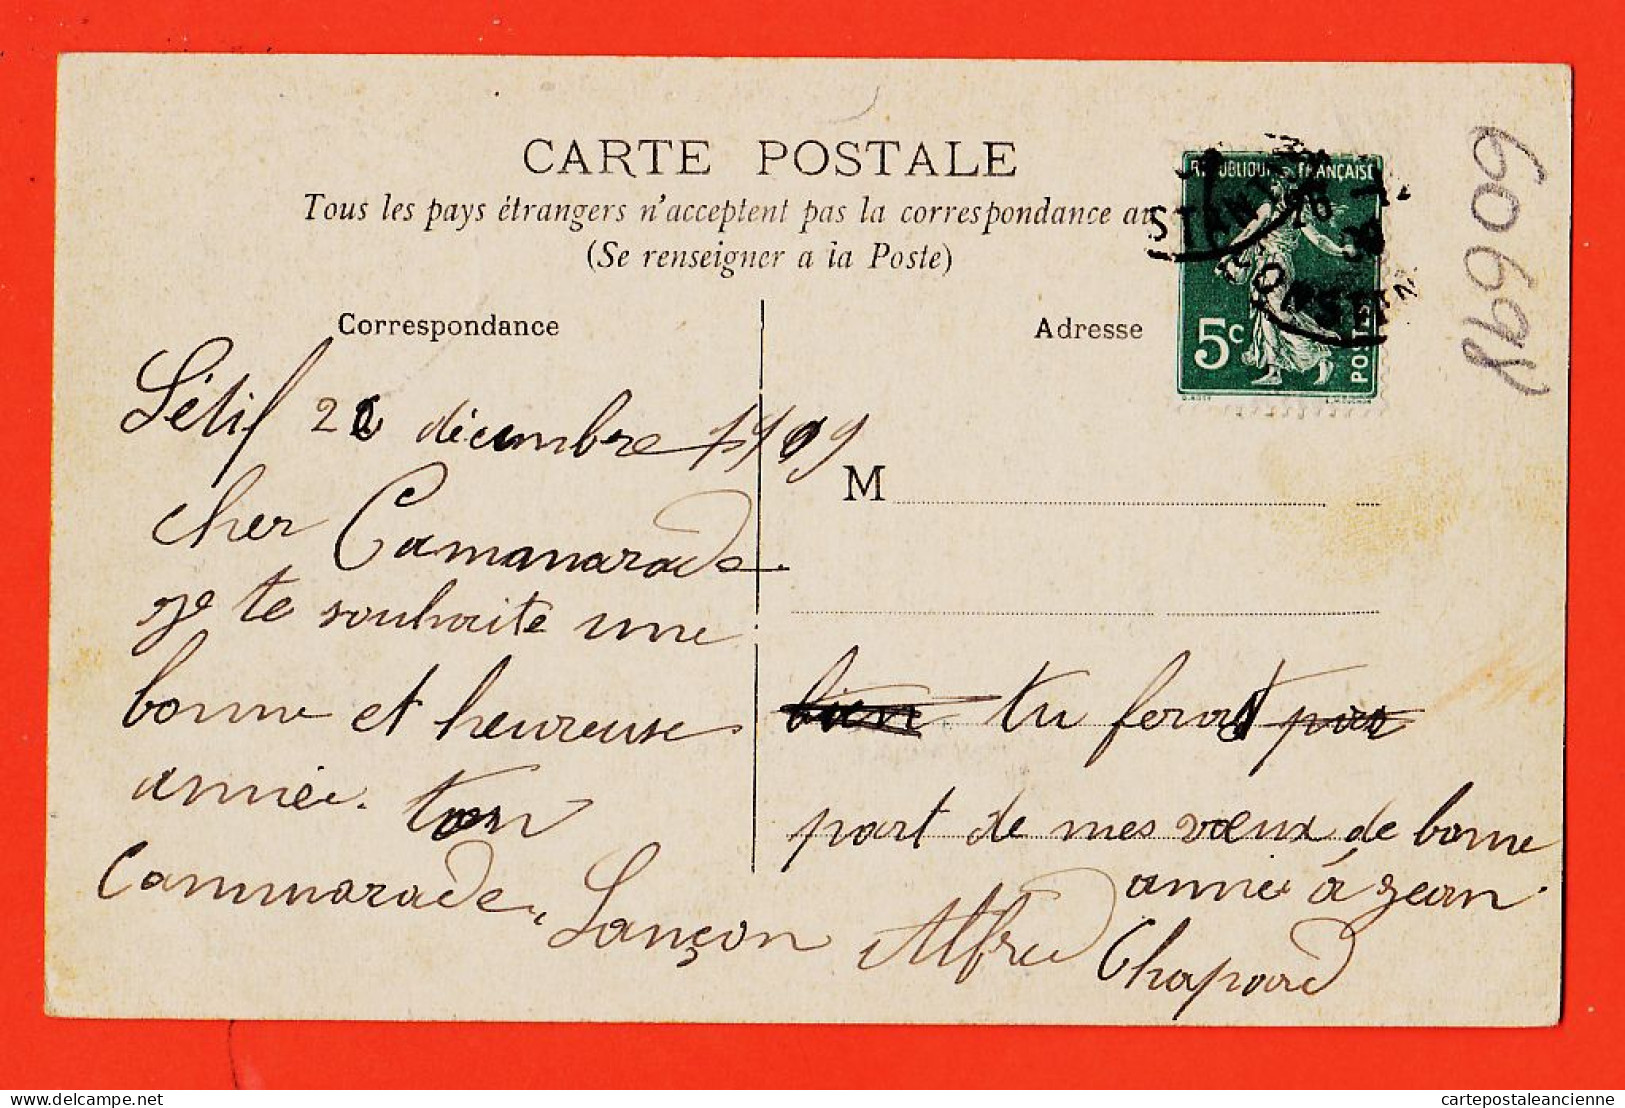 CARTE POSTALE
Tous les pays étrangers n'acceptent pas la correspondance au
(Se renseigner a la Poste)
RÉPUBLIQUE FRANÇAISE
5c
POSTES
60698
Correspondance
Adresse
M
Sétif 22 décembre 1909
cher Camanarade
je te souhaite une
bonne et heureuse
année. ton
Cammarade Lançon Alfred
bien tu feras part
part de mes vœux de bonne
année à Jean
Chapard
delcampe.net
cartepostaleancienne